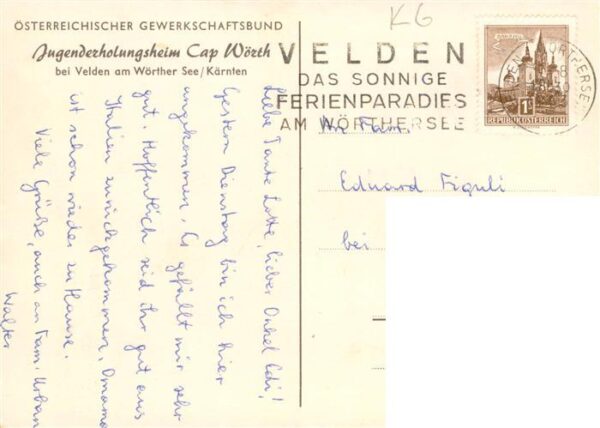 ÖSTERREICHISCHER GEWERKSCHAFTSBUND
Jugenderholungsheim Cap Wörth
bei Velden am Wörther See/Kärnten
Liebe Tante Lotte, lieber Onkel Edi!
Gestern Dienstag bin ich hier
angekommen. Es gefällt mir sehr
gut. Hoffentlich seid ihr gut aus
Italien zurückgekommen. Omama
ist schon wieder zu Hause.
Viele Grüße, auch an Fam. Urban
Walter
K6
VELDEN
DAS SONNIGE
FERIENPARADIES
AM WÖRTHERSEE
1S
REPUBLIK ÖSTERREICH
An Fam.
Eduard Figuli
bei